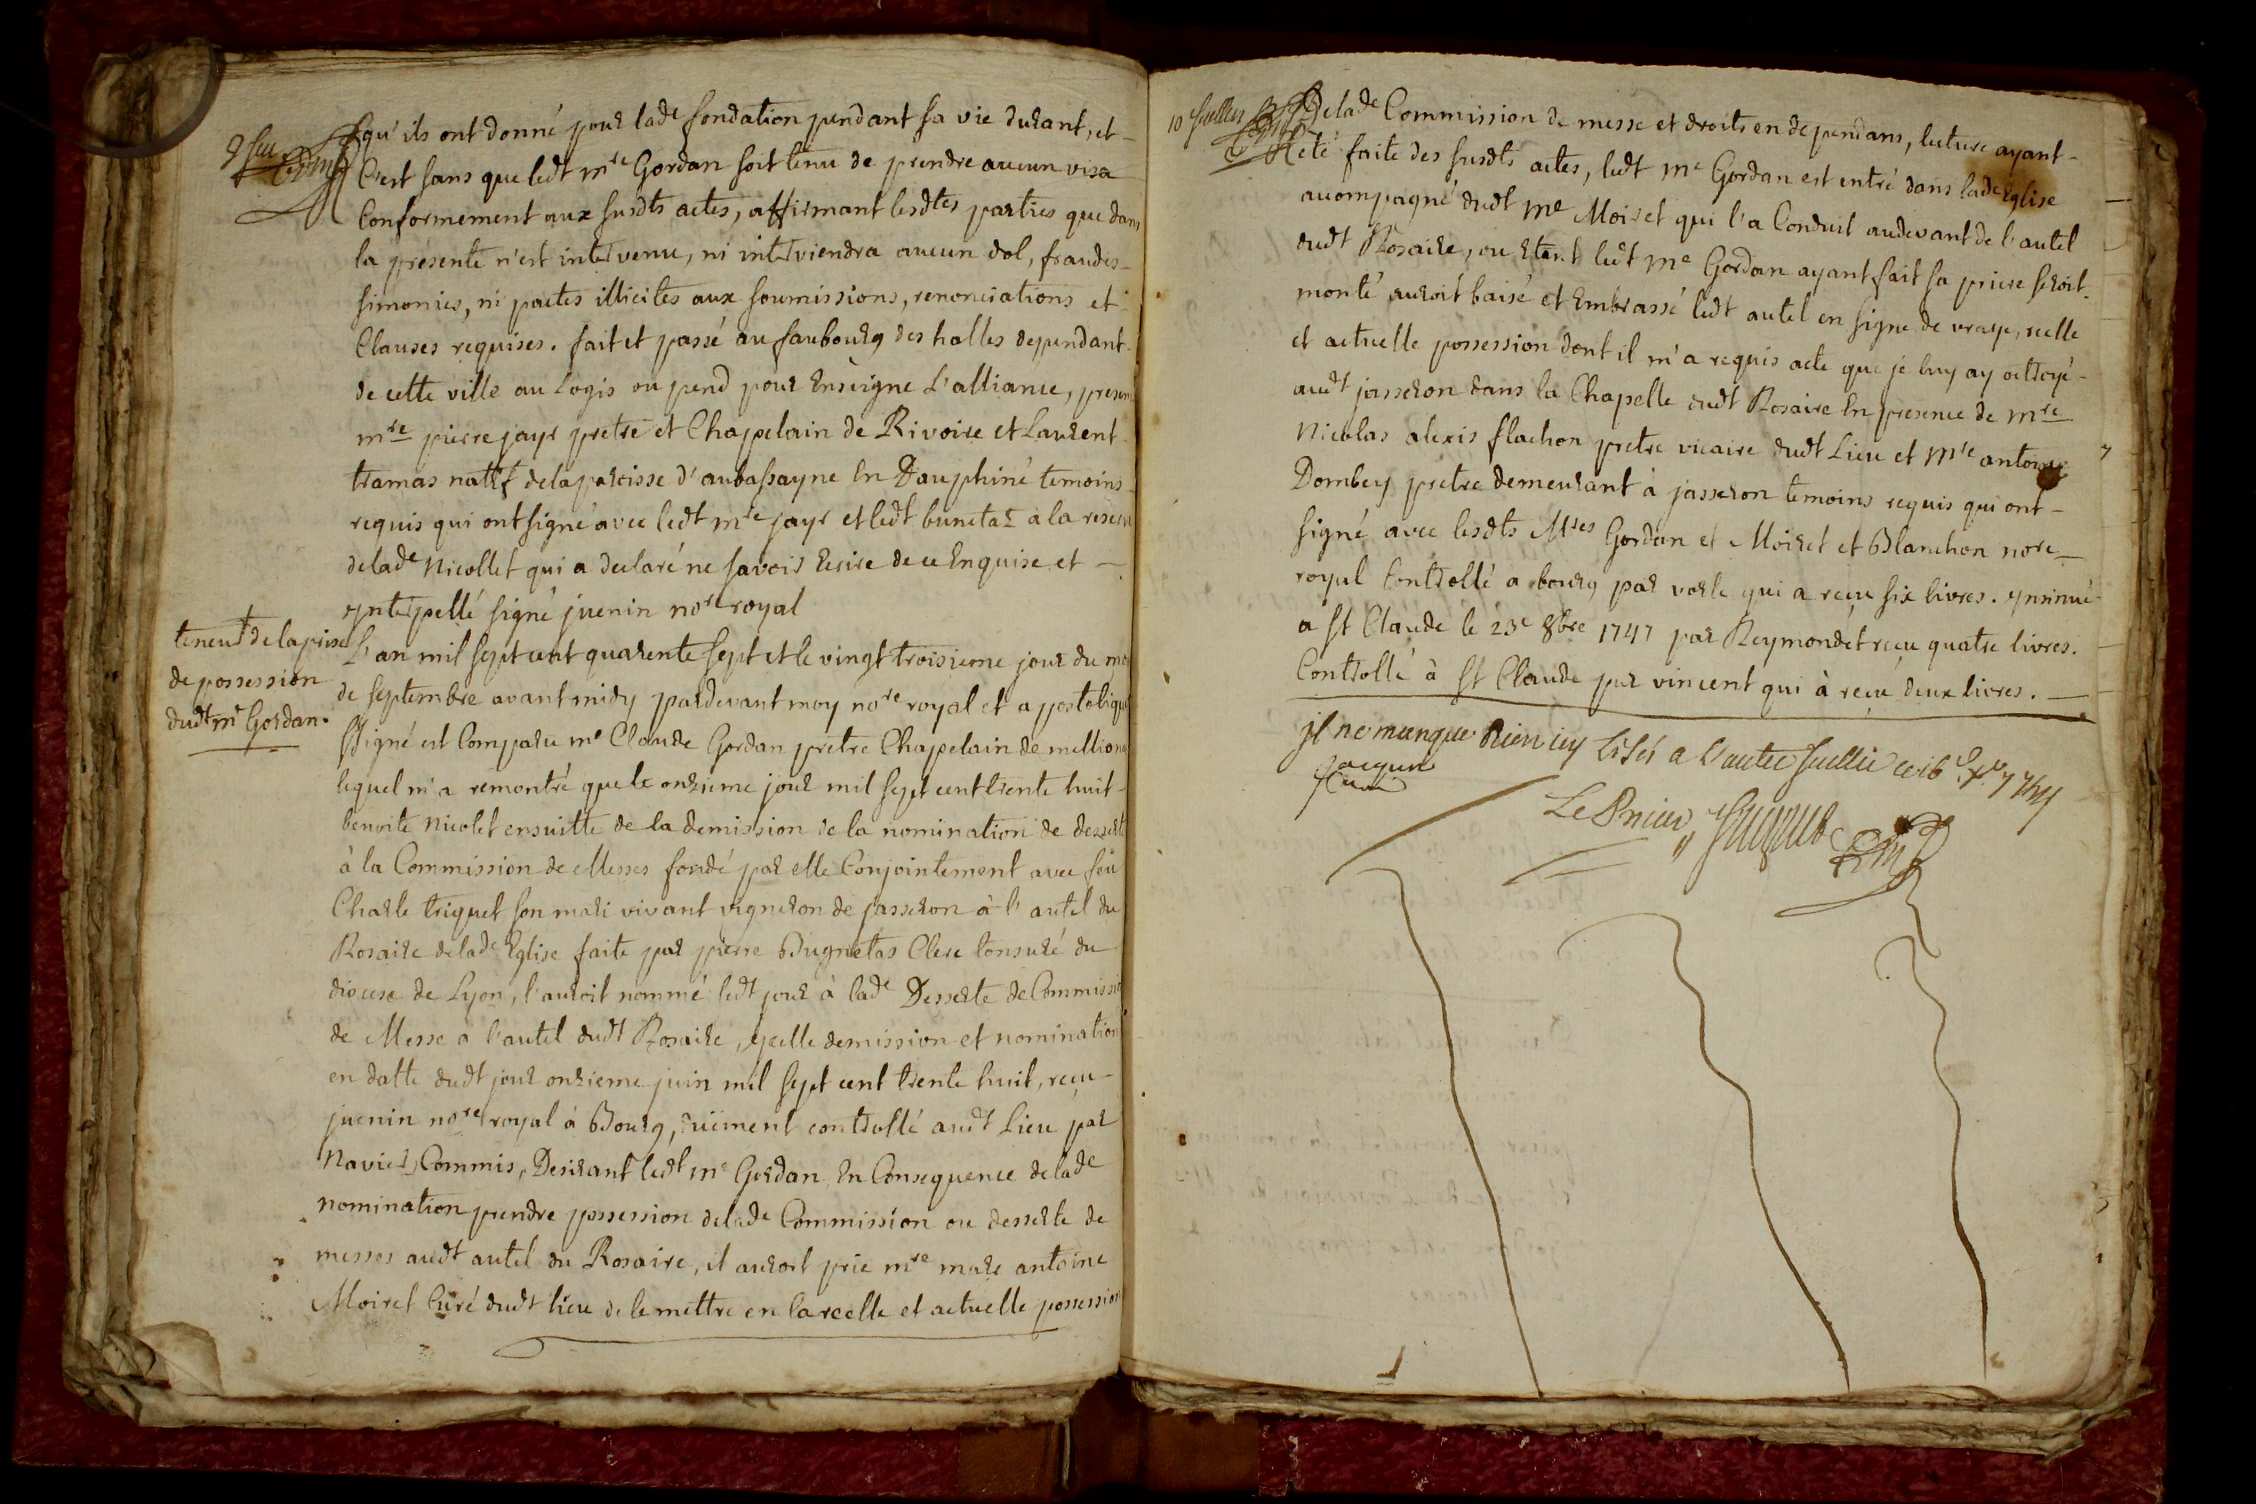 qu'ils ont donné pour lad.e fondation pendant sa vie durant, et
C'est sans que ledt m.re Gordan soit tenu de prendre aucun visa
Conformement aux susdts actes, affirmant lesdtes parties que dans
la presente n'est intervenu, ni interviendra aucun dol, fraudes
simonies, ni pactes illicites aux soumissions, renonciations et
Clauses requises. fait et passé au faubourg des halles dependant
de cette ville au Logis ou pend pour Enseigne L'alliance, presens
m.re pierre jayr pretre et Chapelain de Rivoire et Laurent
tramas natif de la paroisse d'aubassayne En Dauphiné temoins
requis qui ont signé avec ledt m.re jayr et ledt bunetaz a la reserve
de lad.e Nicollet qui a declaré ne savoir Ecrire de ce Enquise et
ynterpellé signé juenin no.re royal
teneur de la prise
de possession
dudt m.e Gordan.
L'an mil sept cent quarente sept et le vingt troisieme jour du mois
de septembre avant midy pardevant moy no.re royal et apostolique
ssigné est Comparu m.e Claude Gordan pretre Chapelain de
lequel m'a remontré que le onzieme jour mil sept cent trente huit
benoite Nicolet ensuitte de la demission de la nomination de desserte
à la Commission de Messes fondé par elle Conjointement avec feu
Charle triquet son mari vivant vigneron de jasseron à l'autel du
Rosaire de lad.e Eglise faite par pierre Bugnetas Clerc tonsuré du
diocese de Lyon, l'auroit nommé ledt jour à lad.e Desserte de Commission
de Messe a l'autel dudt Rosaire, ycelle demission et nomination
en datte dudt jour onzieme juin mil sept cent trente huit, reçu
juenin no.re royal à Bourg, duëment controllé audt Lieu par
Navier, Commis, Desirant ledt m.e Gordan, En Consequence de lad.e
nomination prendre possession de lad.e Commission ou desserte de
messes audt autel du Rosaire, il auroit prié m.re marc antoine
Moiret Curé dudt lieu de le mettre en la reelle et actuelle possession
10 feuillet
de lad.e Commission de messe et droits en dependans, lecture ayant
eté faite des susdts actes, ledt m.e Gordan est entré dans lad.e Eglise
accompagné dudt m.e Moiret qui l'a Conduit audevant de l'autel
dudt Rosaire, ou Etant ledt m.e Gordan ayant fait sa priere seroit
monté auroit baisé et Embrassé ledt autel en signe de vraye, reelle
et actuelle possession dont il m'a requis acte que je luy ay octroyé
audt jasseron dans la Chapelle dudt Rosaire En presence de m.re
Nicolas alexis flachon pretre vicaire dudt Lieu et m.re antoine
Dombey pretre demeurant à jasseron temoins requis qui ont
signé avec lesdts M.res Gordan et Moiret et Blanchon no.re
royal Controllé a bourg par varle qui a reçu six livres. ynsinué
a St Claude le 23.e 8bre 1747 par Reymondet reçu quatre livres.
Controllé à St Claude par vincent qui à reçu deux livres.
jl ne manque Rien icy a l'autre feuillet ce 16
Le Prieur